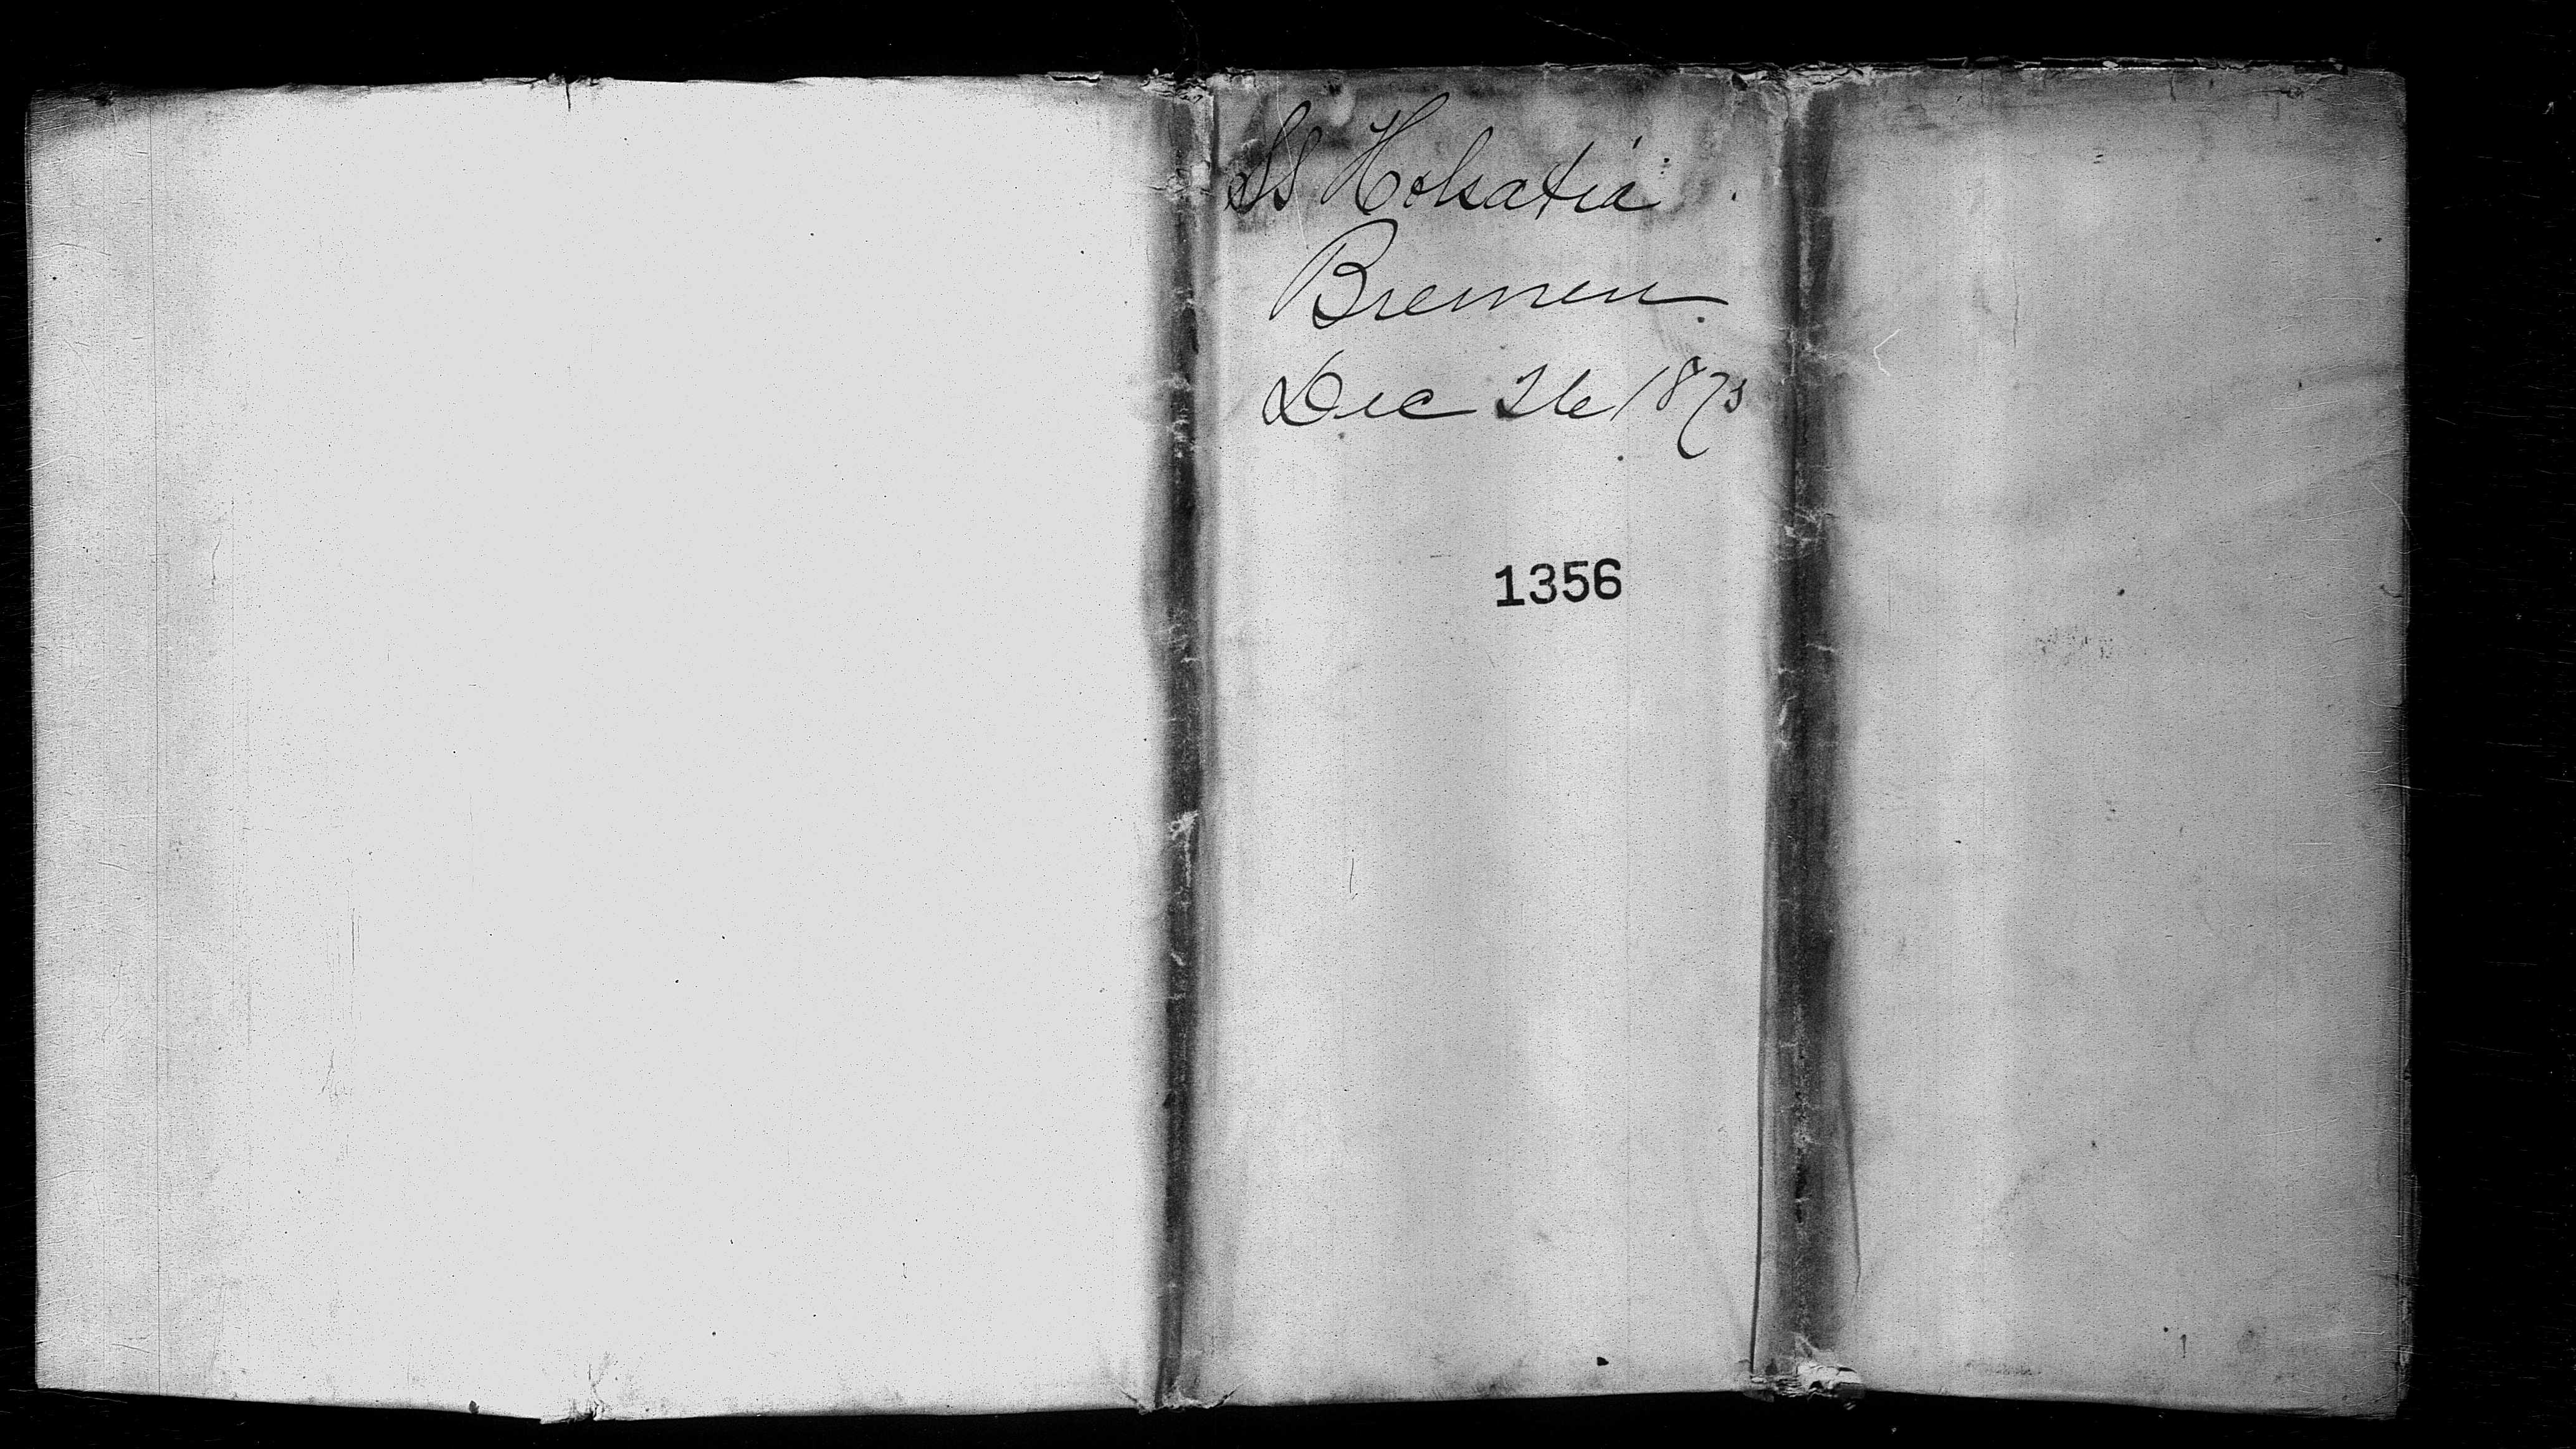 SS Holsatia
Bremen
Dec 26 1873
1356